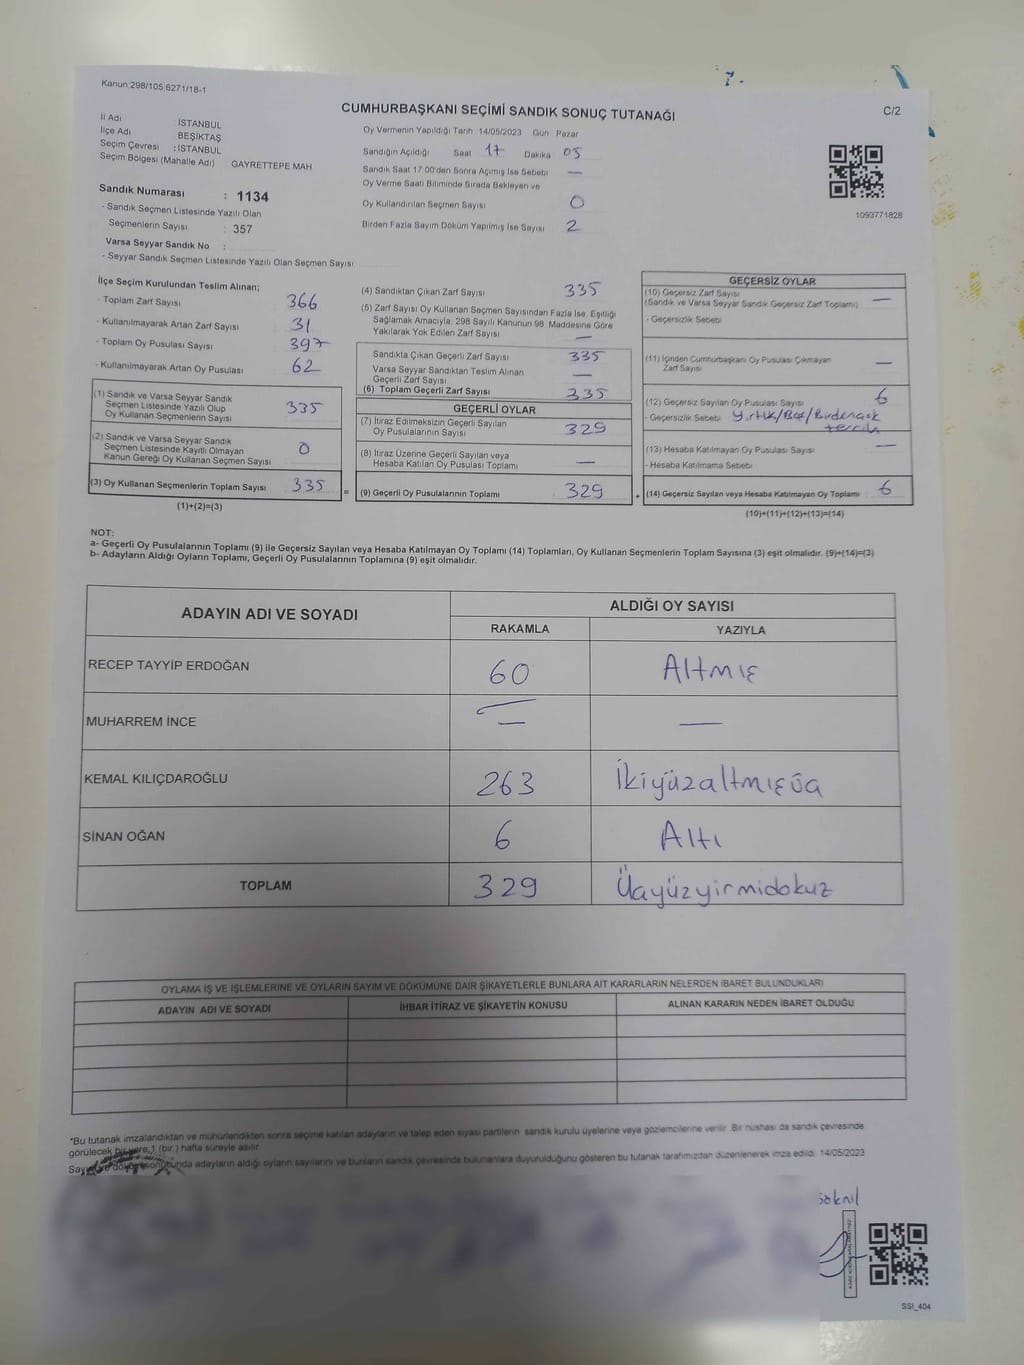 Kanun:298/105,6271/18-1
CUMHURBAŞKANI SEÇİMİ SANDIK SONUÇ TUTANAĞI
C/2
İl Adı : İSTANBUL
İlçe Adı BEŞİKTAŞ
Seçim Çevresi : İSTANBUL
Seçim Bölgesi (Mahalle Adı) : GAYRETTEPE MAH
Sandık Numarası : 1134
- Sandık Seçmen Listesinde Yazılı Olan
Seçmenlerin Sayısı : 357
Varsa Seyyar Sandık No :
- Seyyar Sandık Seçmen Listesinde Yazılı Olan Seçmen Sayısı:
Oy Vermenin Yapıldığı Tarih 14/05/2023 Gün Pazar
Sandığın Açıldığı Saat 17 Dakika 05
Sandık Saat 17.00'den Sonra Açımış İse Sebebi —
Oy Verme Saati Bitiminde Sırada Bekleyen ve
Oy Kullandırılan Seçmen Sayısı 0
Birden Fazla Sayım Döküm Yapılmış İse Sayısı 2
1093771828
İlçe Seçim Kurulundan Teslim Alınan;
- Toplam Zarf Sayısı 366
- Kullanılmayarak Artan Zarf Sayısı 31
- Toplam Oy Pusulası Sayısı 397
- Kullanılmayarak Artan Oy Pusulası 62
(1) Sandık ve Varsa Seyyar Sandık
Seçmen Listesinde Yazılı Olup
Oy Kullanan Seçmenlerin Sayısı 335
(2) Sandık ve Varsa Seyyar Sandık
Seçmen Listesinde Kayıtlı Olmayan
Kanun Gereği Oy Kullanan Seçmen Sayısı 0
(3) Oy Kullanan Seçmenlerin Toplam Sayısı 335
(1)+(2)=(3)
(4) Sandıktan Çıkan Zarf Sayısı 335
(5) Zarf Sayısı Oy Kullanan Seçmen Sayısından Fazla İse, Eşitliği
Sağlamak Amacıyla, 298 Sayılı Kanunun 98. Maddesine Göre
Yakılarak Yok Edilen Zarf Sayısı —
Sandıkta Çıkan Geçerli Zarf Sayısı 335
Varsa Seyyar Sandıktan Teslim Alınan
Geçerli Zarf Sayısı —
(6) Toplam Geçerli Zarf Sayısı 335
GEÇERLİ OYLAR
(7) İtiraz Edilmeksizin Geçerli Sayılan
Oy Pusulalarının Sayısı 329
(8) İtiraz Üzerine Geçerli Sayılan veya
Hesaba Katılan Oy Pusulası Toplamı —
= (9) Geçerli Oy Pusulalarının Toplamı 329
GEÇERSİZ OYLAR
(10) Geçersiz Zarf Sayısı —
(Sandık ve Varsa Seyyar Sandık Geçersiz Zarf Toplamı)
- Geçersizlik Sebebi
(11) İçinden Cumhurbaşkanı Oy Pusulası Çıkmayan
Zarf Sayısı —
(12) Geçersiz Sayılan Oy Pusulası Sayısı 6
- Geçersizlik Sebebi Yırtık/Boş/Birdençok
tercih
(13) Hesaba Katılmayan Oy Pusulası Sayısı —
- Hesaba Katılmama Sebebi
+ (14) Geçersiz Sayılan veya Hesaba Katılmayan Oy Toplamı 6
(10)+(11)+(12)+(13)=(14)
NOT:
a- Geçerli Oy Pusulalarının Toplamı (9) ile Geçersiz Sayılan veya Hesaba Katılmayan Oy Toplamı (14) Toplamları, Oy Kullanan Seçmenlerin Toplam Sayısına (3) eşit olmalıdır. (9)+(14)=(3)
b- Adayların Aldığı Oyların Toplamı, Geçerli Oy Pusulalarının Toplamına (9) eşit olmalıdır.
ADAYIN ADI VE SOYADI ALDIĞI OY SAYISI
RAKAMLA YAZIYLA
RECEP TAYYİP ERDOĞAN 60 Altmış
MUHARREM İNCE — —
KEMAL KILIÇDAROĞLU 263 İkiyüzaltmışüç
SİNAN OĞAN 6 Altı
TOPLAM 329 Üçyüzyirmidokuz
OYLAMA İŞ VE İŞLEMLERİNE VE OYLARIN SAYIM VE DÖKÜMÜNE DAİR ŞİKAYETLERLE BUNLARA AİT KARARLARIN NELERDEN İBARET BULUNDUKLARI
ADAYIN ADI VE SOYADI İHBAR İTİRAZ VE ŞİKAYETİN KONUSU ALINAN KARARIN NEDEN İBARET OLDUĞU
*Bu tutanak imzalandıktan ve mühürlendikten sonra seçime katılan adayların ve talep eden siyasi partilerin sandık kurulu üyelerine veya gözlemcilerine verilir. Bir nüshası da sandık çevresinde
görülecek bir yere 1 (bir ) hafta süreyle asılır
adayların aldığı oyların sayılarını ve bunların sandık çevresinde bulunanlara duyurulduğunu gösteren bu tutanak tarafımızdan düzenlenerek imza edildi. 14/05/2023
SSI_404